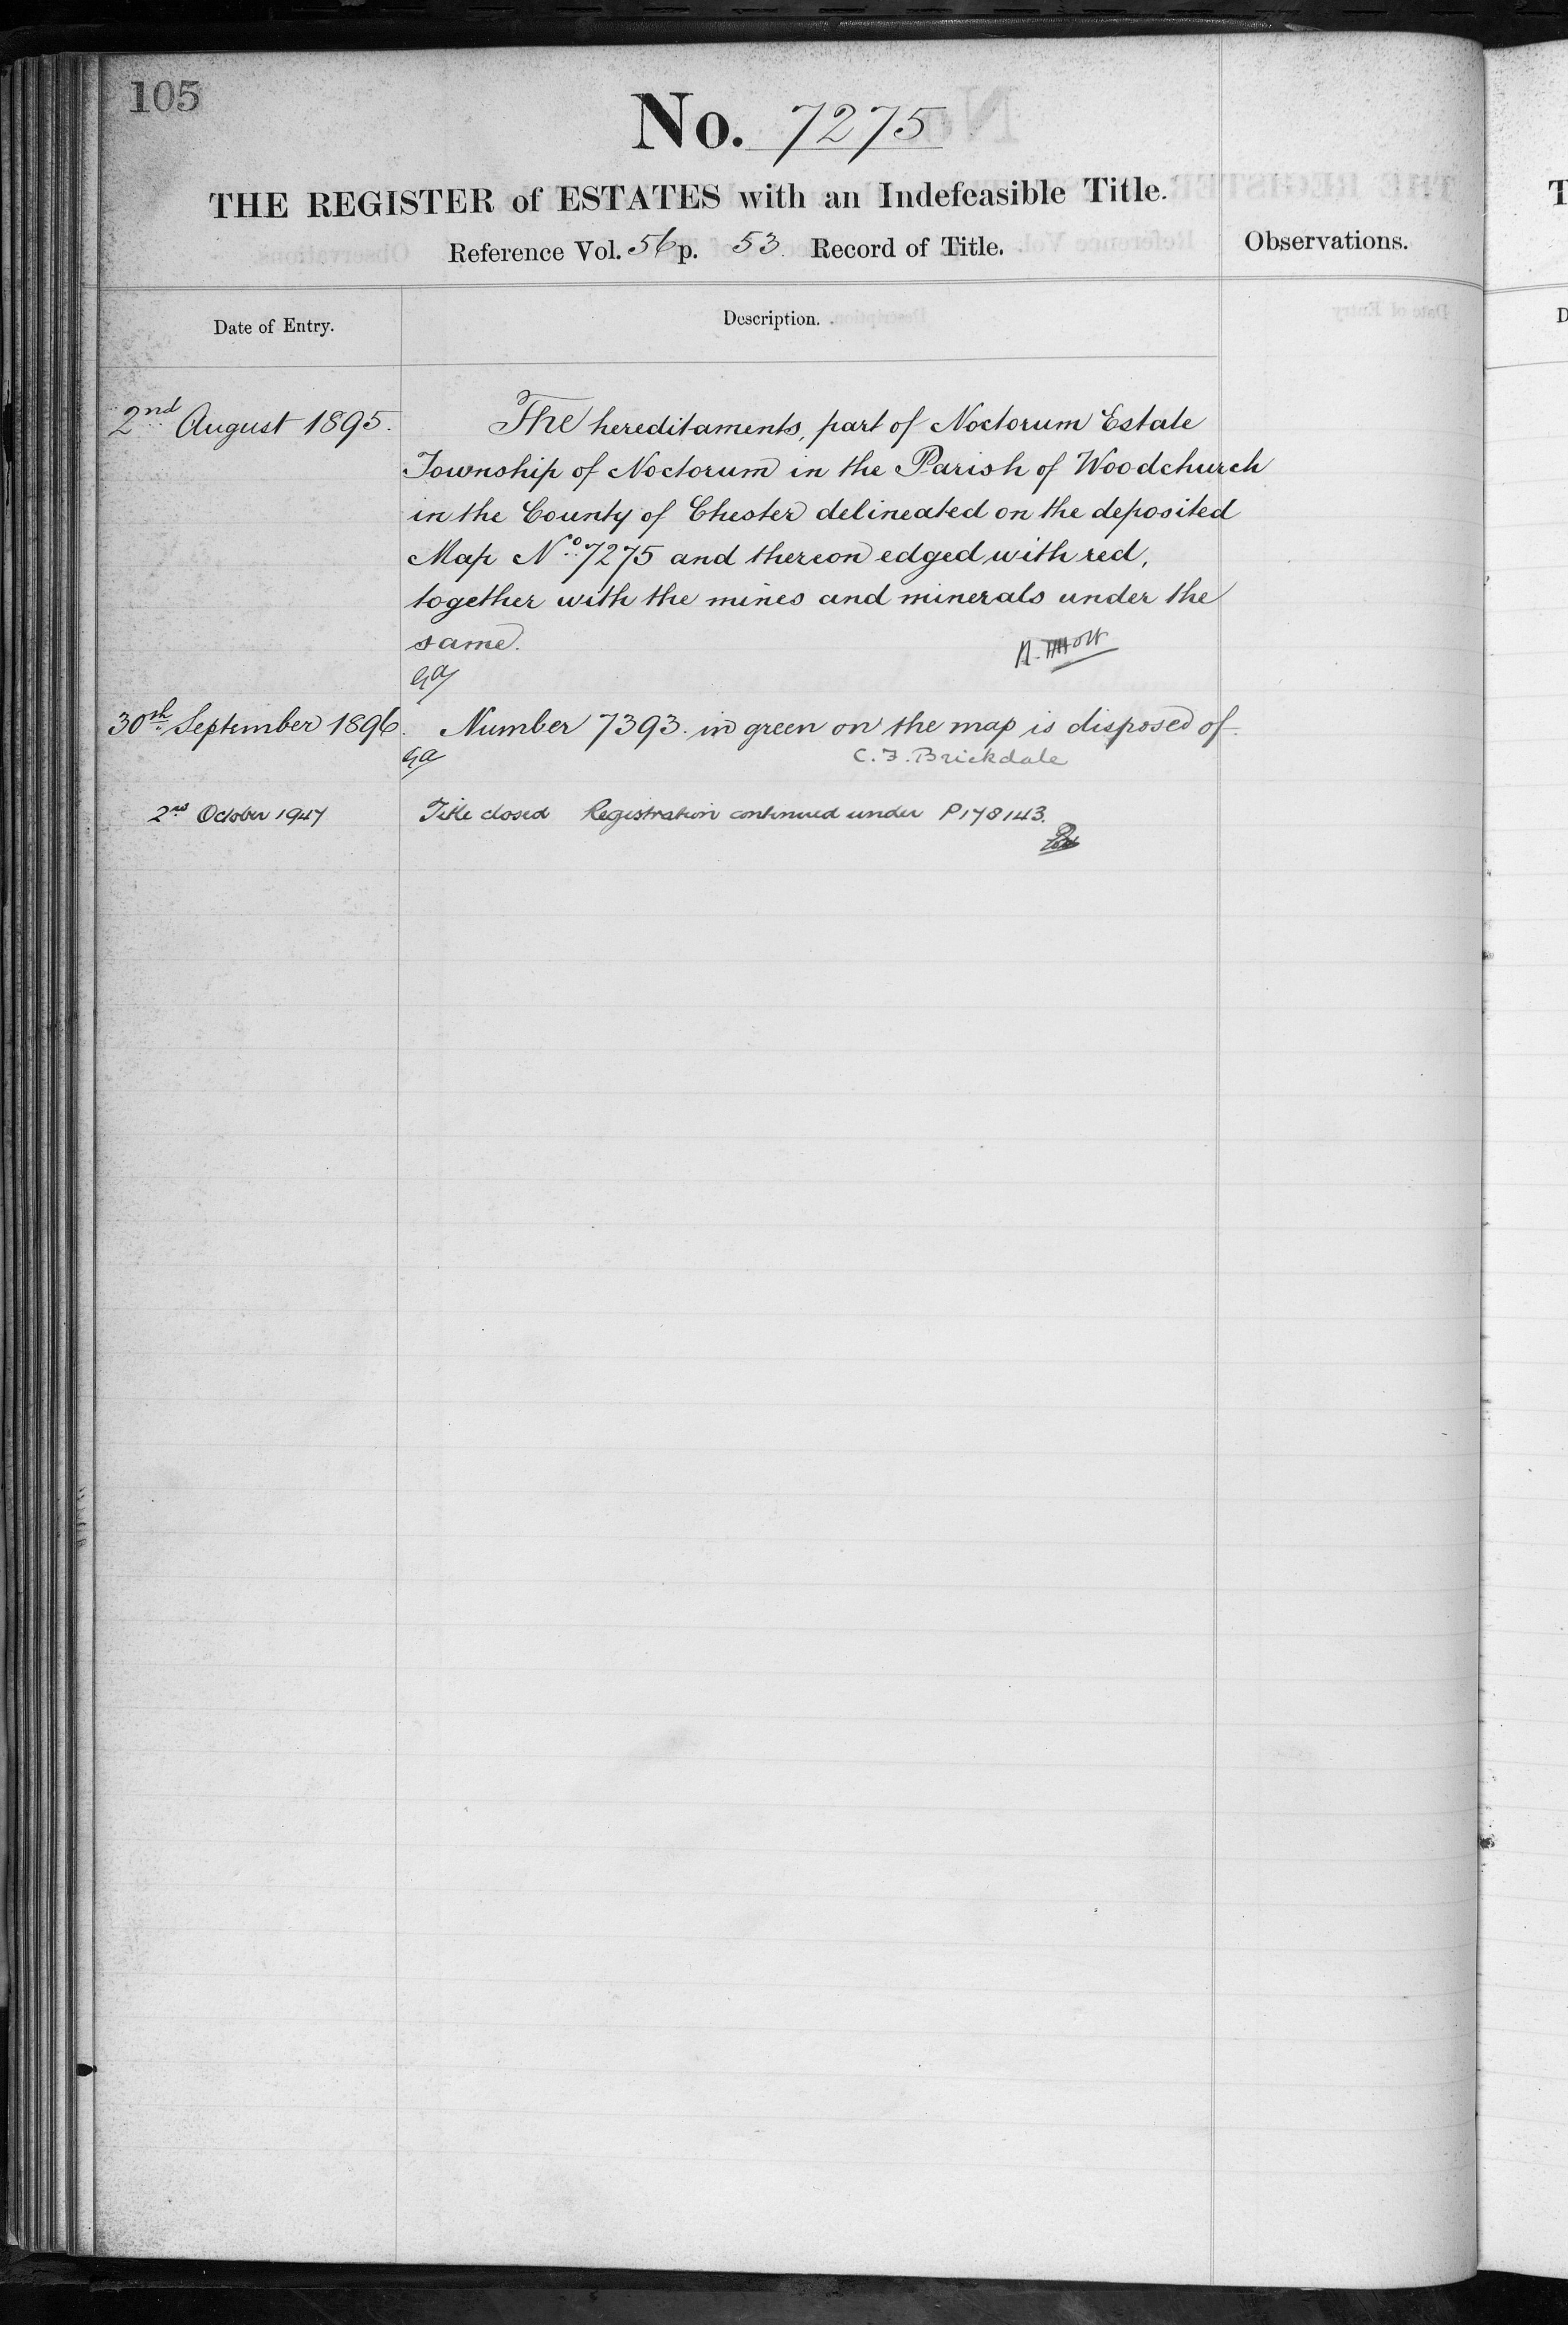 105
No. 7275
THE REGISTER of ESTATES with an Indefeasible Title.
Reference Vol. 56 p. 53. Record of Title.
Observations.
Date of Entry.
Description.
2nd August 1895.
The hereditaments, part of Noctorum Estate
Township of Noctorum in the Parish of Woodchurch
in the County of Chester delineated on the deposited
Map No. 7275 and thereon edged with red,
together with the mines and minerals under the
same.
30th September 1896.
Number 7393. in green on the map is disposed of
C. F. Brickdale
2nd October 1947
Title closed Registration continued under P178143.